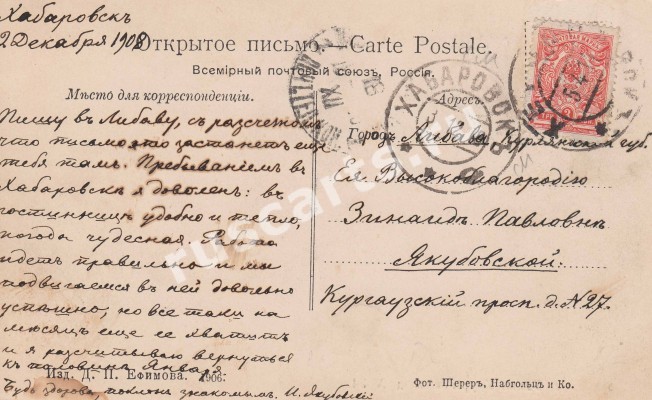 Хабаровскъ
2 Декабря 1908
Открытое письмо.—Carte Postale.
Всемірный почтовый союзъ. Россія.
Мѣсто для корреспонденціи.
Адресъ.
Пишу въ Либаву, съ разсчетомъ
что письмо это застанетъ еще
тебя тамъ. Пребываніемъ въ
Хабаровскѣ я доволенъ: въ
гостинницѣ удобно и тепло,
погода чудесная. Работа
идетъ правильно и мы
подвигаемся въ ней довольно
успѣшно, но все таки на
мѣсяцъ еще ее хватитъ
и я разсчитываю вернуться
къ половинѣ Января.
Будь здорова, поклонъ знакомымъ. И. Якубовскій
Городъ Либава Курляндской губ.
Ея Высокоблагородію
Зинаидѣ Павловнѣ
Якубовской.
Кургаузскій просп. д. N 27.
ХАБАРОВСКЪ
Изд. Д. П. Ефимова. 1906.
Фот. Шереръ, Набгольцъ и Ко.